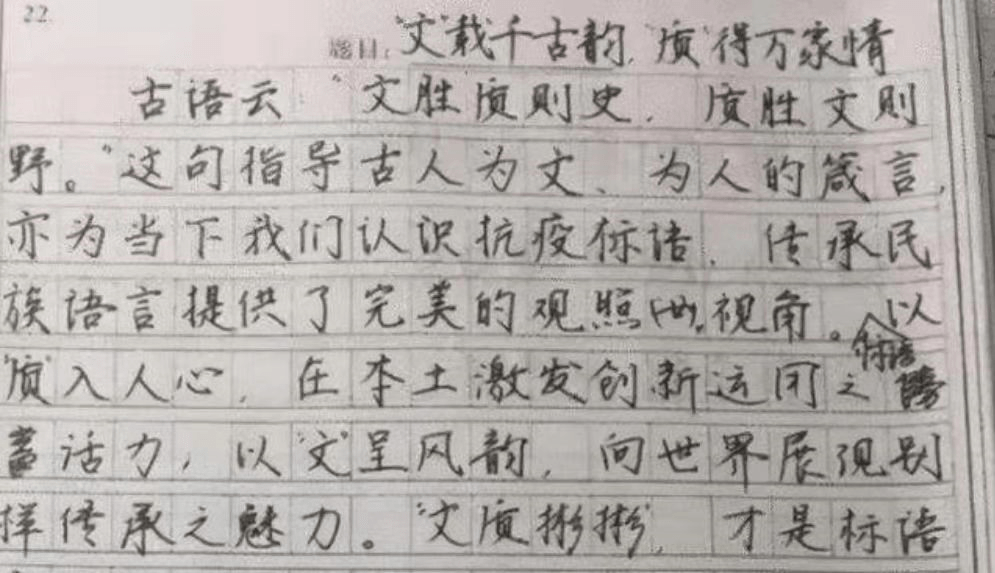 22
题目:“文”载千古韵,“质”得万家情
古语云:“文胜质则史,质胜文则
野。”这句指导古人为文、为人的箴言,
亦为当下我们认识抗疫标语,传承民
族语言提供了完美的观照视角。以
标语
“质”入人心,在本土激发创新运用之
活力,以“文”呈风韵,向世界展现别
样传承之魅力。“文质彬彬”,才是标语